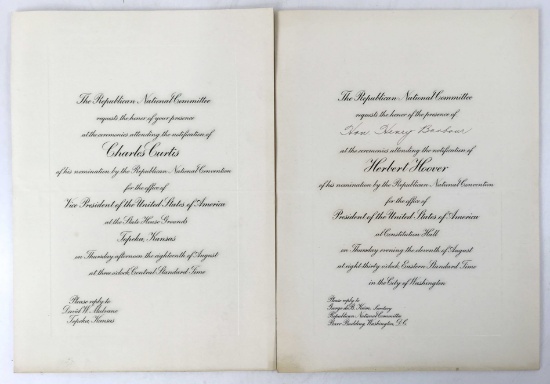 The Republican National Committee
requests the honor of your presence
at the ceremonies attending the notification of
Charles Curtis
of his nomination by the Republican National Convention
for the office of
Vice President of the United States of America
at the State House Grounds
Topeka, Kansas
on Thursday afternoon the eighteenth of August
at three o'clock Central Standard Time
Please reply to
David W. Mulvane
Topeka, Kansas
The Republican National Committee
requests the honor of the presence of
Hon Henry Barbour
at the ceremonies attending the notification of
Herbert Hoover
of his nomination by the Republican National Convention
for the office of
President of the United States of America
at Constitution Hall
on Thursday evening the eleventh of August
at eight-thirty o'clock, Eastern Standard Time
in the City of Washington
Please reply to
George de B. Keim, Secretary
Republican National Committee
Barr Building, Washington, D.C.